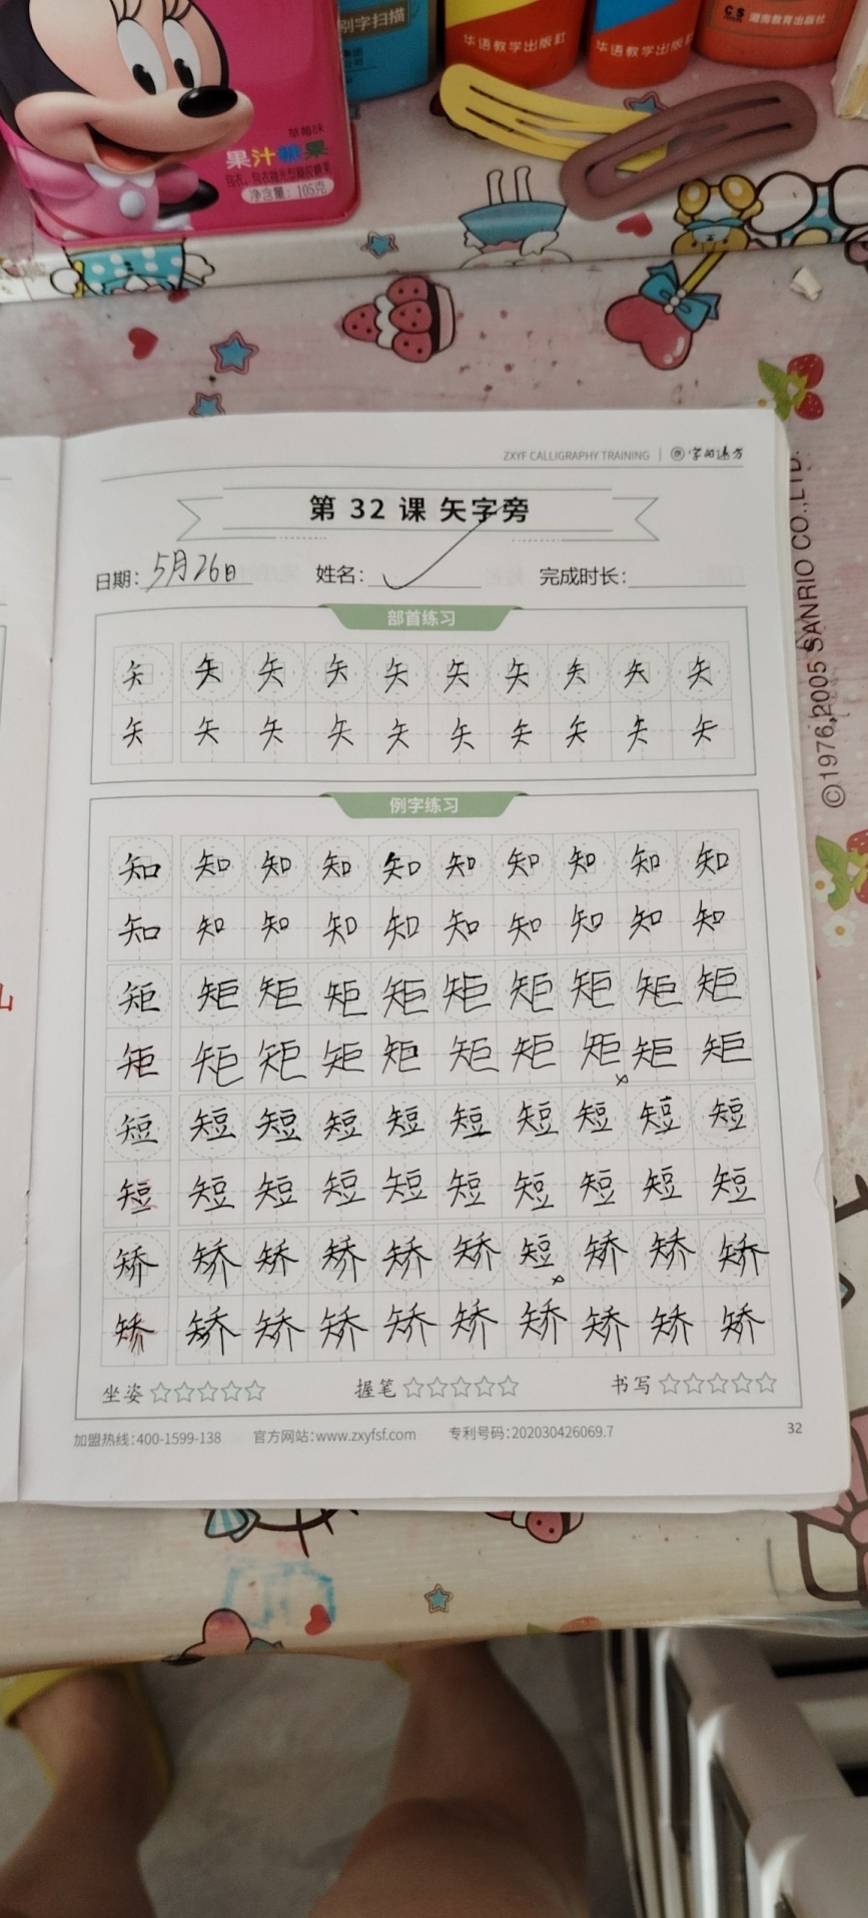 别字扫描
华语教学出版社
华语教学出版社
CS 湖南教育出版社
草莓味
果汁软糖果
净含量：105克
ZXYF CALLIGRAPHY TRAINING
第 32 课 矢字旁
日期：5月26日 姓名： 完成时长：
部首练习
矢 矢 矢 矢 矢 矢 矢 矢 矢 矢
矢 矢 矢 矢 矢 矢 矢 矢 矢 矢
例字练习
知 知 知 知 知 知 知 知 知 知
知 知 知 知 知 知 知 知 知 知
矩 矩 矩 矩 矩 矩 矩 矩 矩 矩
矩 矩 矩 矩 矩 矩 矩 矩 矩 矩
短 短 短 短 短 短 短 短 短 短
短 短 短 短 短 短 短 短 短 短
矫 矫 矫 矫 矫 矫 短 矫 矫 矫
矫 矫 矫 矫 矫 矫 矫 矫 矫 矫
坐姿☆☆☆☆☆ 握笔☆☆☆☆☆ 书写☆☆☆☆☆
加盟热线：400-1599-138 官方网站：www.zxyfsf.com 专利号码：202030426069.7
32
©1976,2005 SANRIO CO.,LTD.